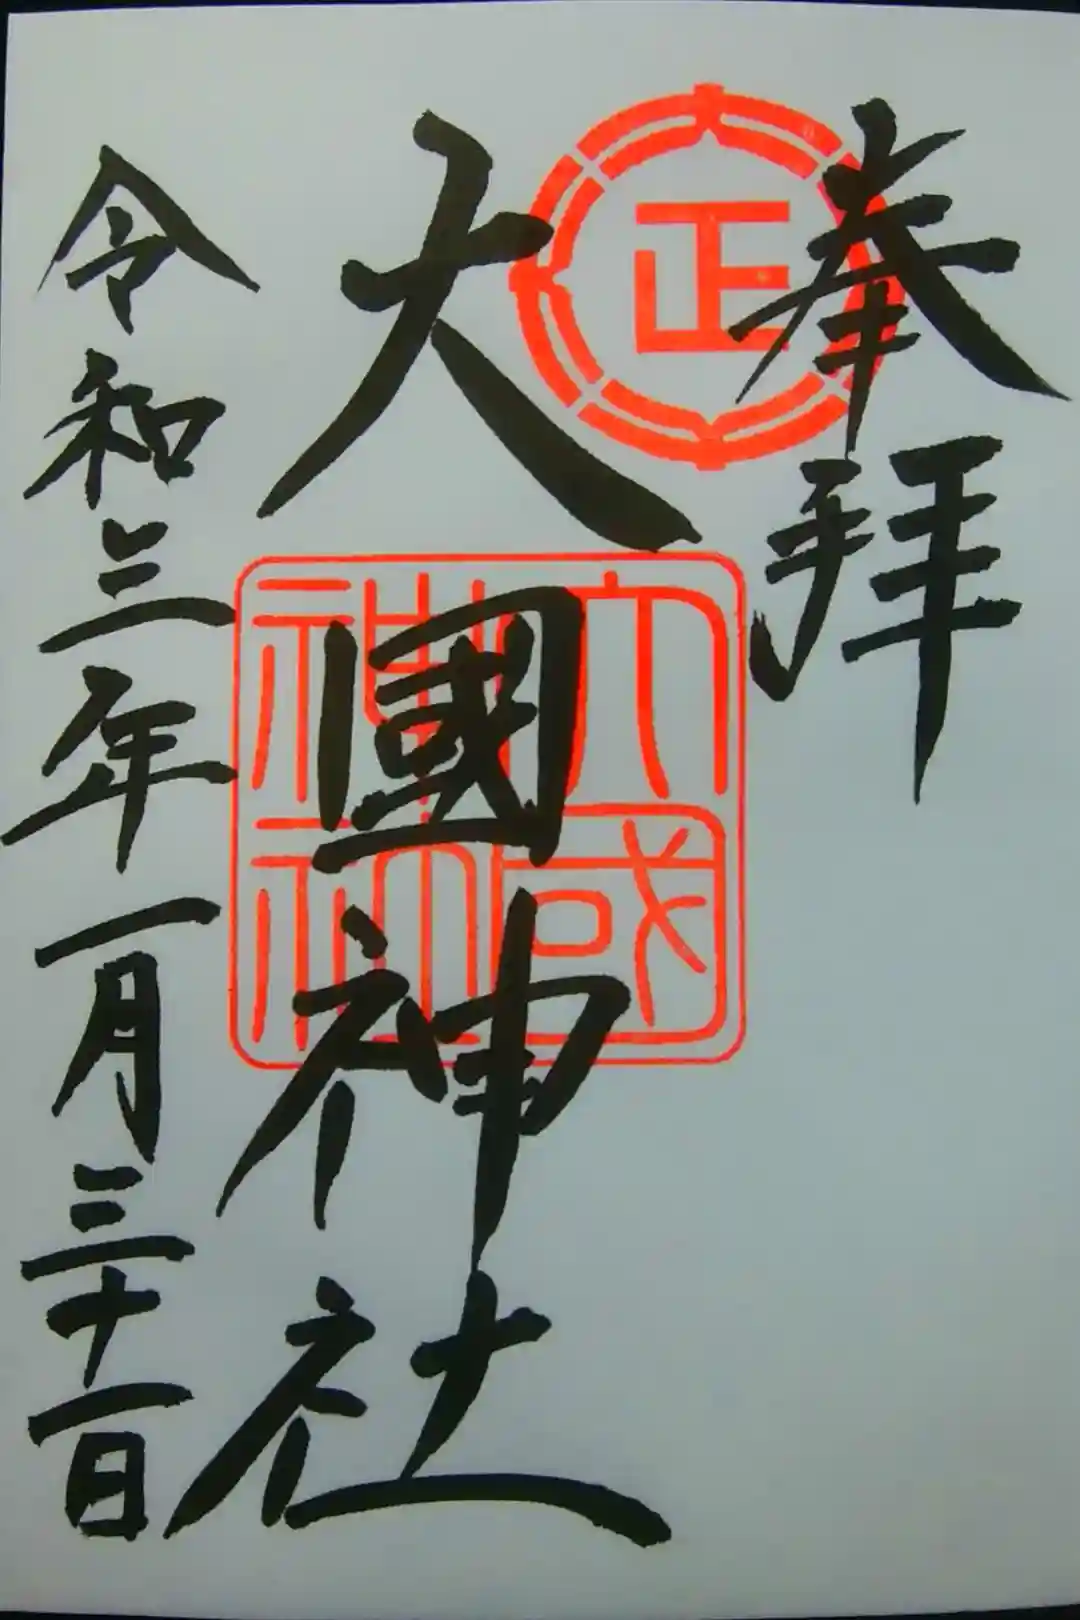 奉拝
正
大國神社
大國
神社
令和三年一月三十一日